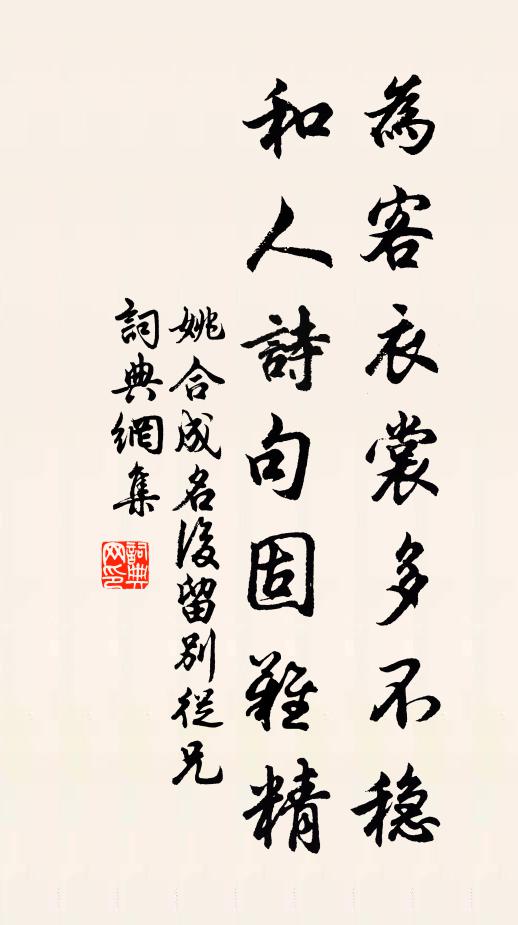 為客衣裳多不稳
和人詩句固難精
姚合成名後留別從兄
詞典網集
詞典网印